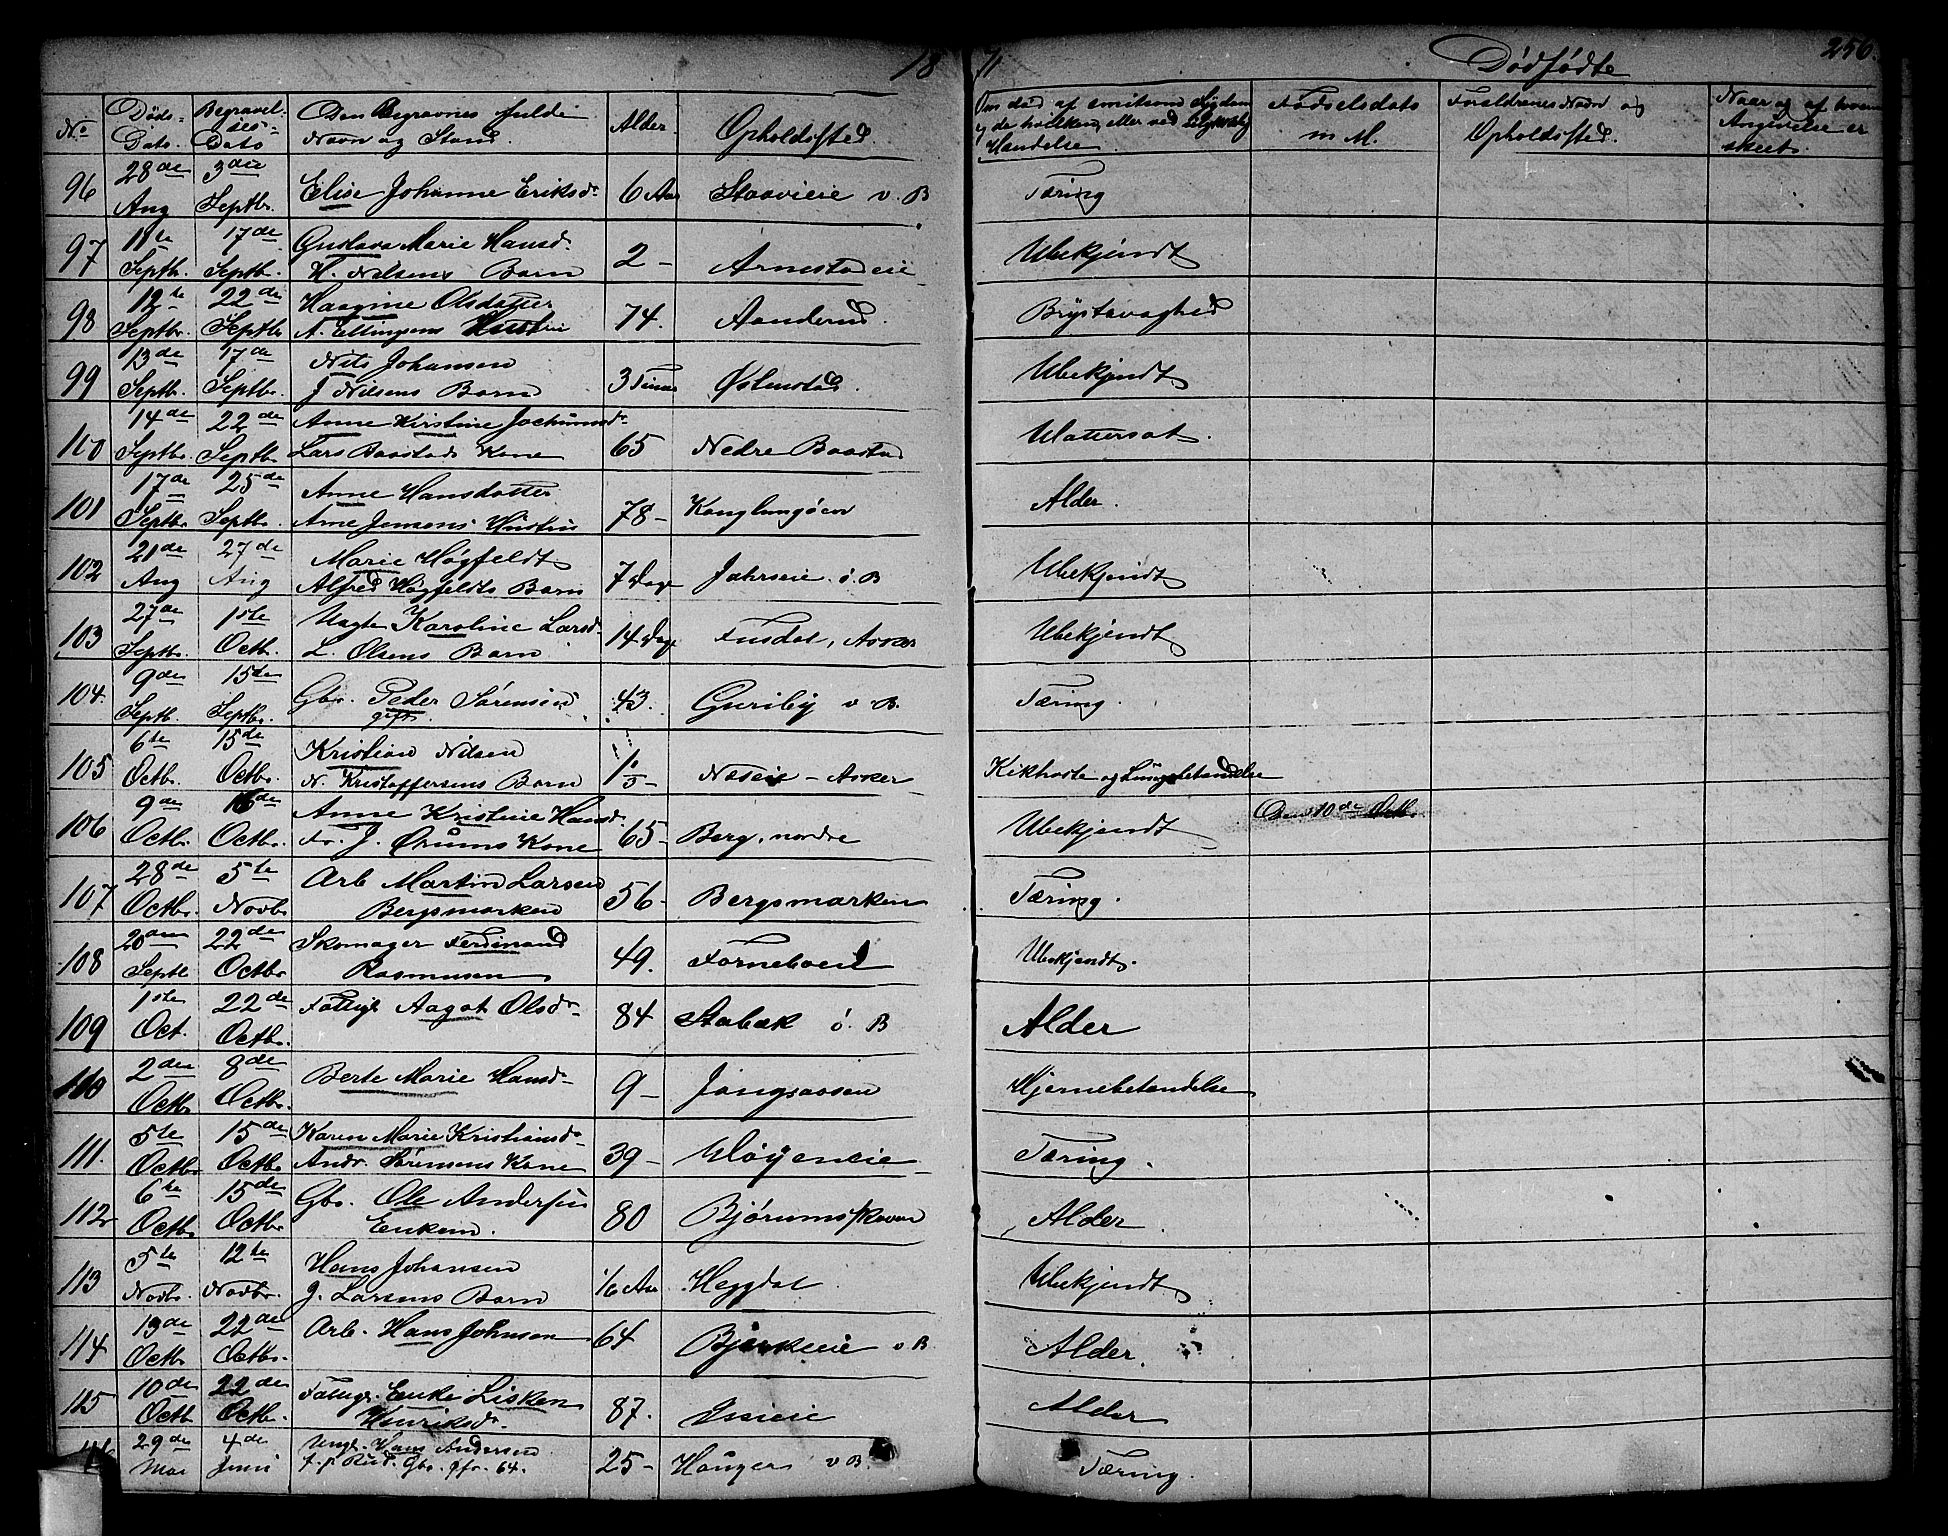 18 71 Dødfødte 256.
No Døds-Dato. Begravelses-Dato Den Begravnes fulde Navn og Stand. Alder. Opholdssted. Om død af smitsom Sygdom og da hvilken, eller ved ulykkelig Hændelse. Fødselsdato m. M. Forældrenes Navn og Opholdssted. Naar og af hvem Angivelse er skeet.
96 28de Aug 3die Septbr. Elise Johanne Eriksdr 6 Aar v. B Tæring
97 11te Septbr. 17de Septbr. Gustava Marie Hansd. H. Nilsens Barn 2 - Arnestadeie Ubekjendt
98 12te Septbr. 22de Septbr Haagine Olsdatter A. Ellingsens Hustru 74. Aanderud. Brystsvaghed
99 13de Septbr. 17de Septbr. Nils Johansen J Nilsens Barn 3 Timer Østenstad. Ubekjendt
100 14de Septbr. 22de Septbr Anne Kirstine Jochumsdr Lars Baastads Kone 65 Nedre Baastad Mattersot.
101 17de Septbr. 25de Septbr. Anne Hansdatter Arne Jensens Hustru 78 - Konglungøen Alder.
102 21de Aug 27de Aug Marie Høgfeldt Alfred Høgfeldts Barn 7 Dage ø. B Ubekjendt
103 27de Septbr. 1ste Octbr. Karoline Larsd. L. Olsens Barn 14 Dage Fusdal, Asker Ubekjendt
104. 9de Septbr. 15de Septbr. Gbr. Peder Sørensen gift 43. Guriby v. B. Tæring.
105 6te Octbr. 15de Octbr. Kristian Nilsen N. Kristoffersens Barn Næseie - Asker Kikhoste og Lungebetændelse
106 9de Octbr. 16de Octbr. Anne Kristine Hansd. 65 - Berg, nordre Ubekjendt 10de Octbr.
107 28de Octbr. 5te Novbr Arb Martin Larsen Bergsmarken 56 - Bergsmarken Tæring.
108 20de Septbr 22de Octbr Skomager Ferdinand Rasmussen 49. Forneboeie Ubekjendt.
109 1ste Oct. 22de Octbr. Fattigl Aagot Olsdr 84 Stabæk ø. B Alder
110 2den Octbr 8de Octbr. Berte Marie Hansd. 9 - Jongsaasen Hjernebetændelse
111. 5te Octbr 15de Octbr. Karen Marie Kristiansdr Andr. Sørensens Kone 39 - Tæring.
112 6te Octbr. 15de Octbr Gbr. Ole Andersen Enkem. 80 Bjørumskoven Alder
113 5te Novbr. 12te Novbr. Hans Johansen J. Larsens Barn Heggdal Ubekjendt
114 13de Octbr 22de Octbr. Arb. Hans Johnsen 64 Bjerkeeie v B Alder.
115 10de Octbr 22de Octbr. Fattigl. Enke Lisken Henriksdr. 87. Alder
116 29de Mai 4de Juni Ungk. Hans Andersen f. p. Rud. 64. 25 - Hauger v B. Tæring.